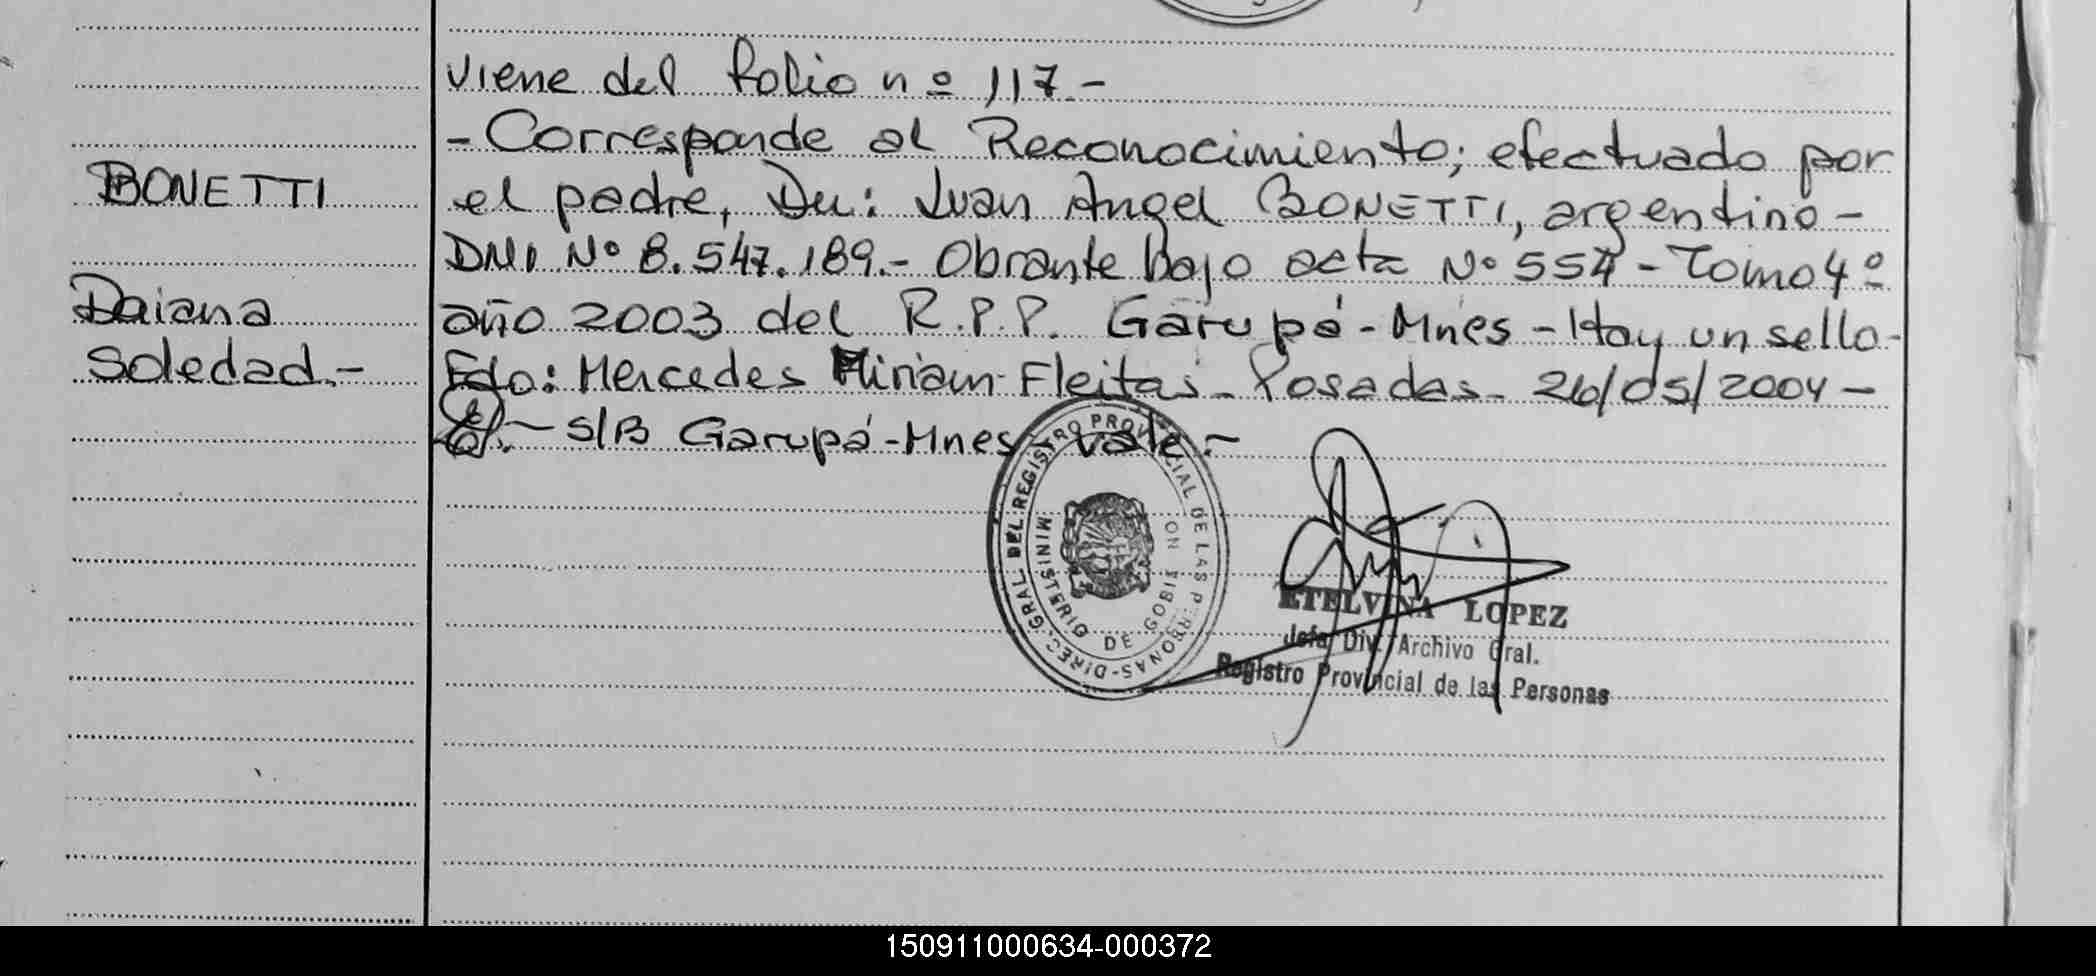 viene del folio nº 117-
- Corresponde al Reconocimiento; efectuado por
BONETTI
el padre, Dn: Juan Angel BONETTI, argentino-
DNI Nº 8.547.189.- Obrante bajo acta Nº 554 - Tomo 4º
Daiana
año 2003 del R.P.P. Garupá-Mnes - Hay un sello-
Soledad.-
Fdo: Mercedes Miriam Fleitas- Posadas- 26/05/2004-
S/B Garupá-Mnes- Vale.-
DIREC. GRAL. DEL REGISTRO PROVINCIAL DE LAS PERSONAS-
MINISTERIO DE GOBIERNO
ETELVINA LOPEZ
Jefa Div. Archivo Gral.
Registro Provincial de las Personas
150911000634-000372